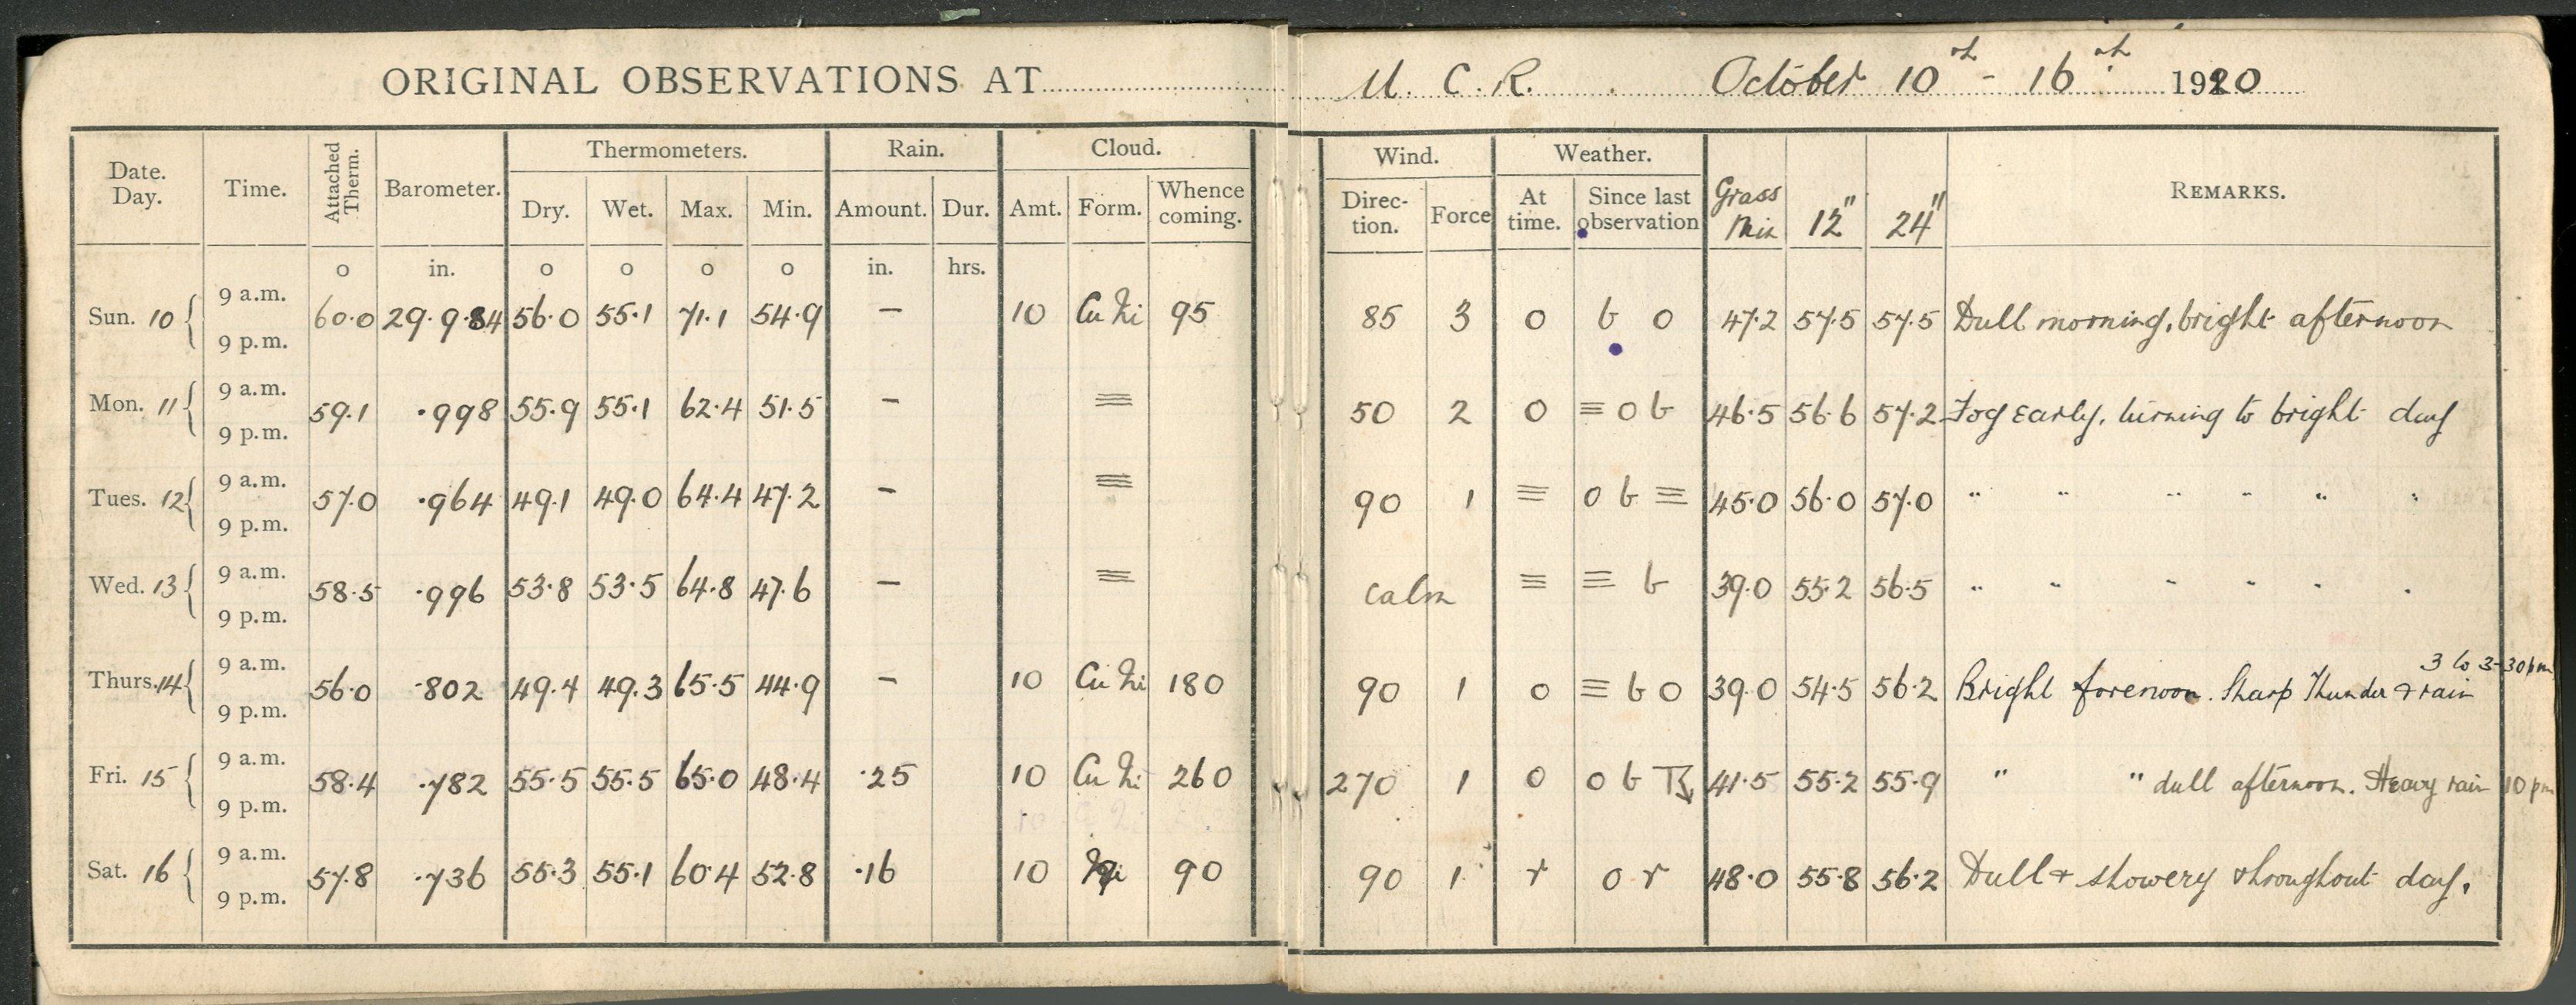 ORIGINAL OBSERVATIONS AT U. C. R. October 10th - 16th 1920
Date. Day. Time. Attached Therm. Barometer. Thermometers. Rain. Cloud. Wind. Weather. Grass Min 12" 24" REMARKS.
Dry. Wet. Max. Min. Amount. Dur. Amt. Form. Whence coming. Direc- tion. Force At time. Since last observation
o in. o o o o in. hrs.
9 a.m.
Sun. 10 60.0 29.984 56.0 55.1 71.1 54.9 — 10 Cu Ni 95 85 3 o b o 47.2 57.5 57.5 Dull morning, bright afternoon
9 p.m.
9 a.m.
Mon. 11 59.1 .998 55.9 55.1 62.4 51.5 — ≡ 50 2 o ≡ o b 46.5 56.6 57.2 Fog early, turning to bright day
9 p.m.
9 a.m.
Tues. 12 57.0 .964 49.1 49.0 64.4 47.2 — ≡ 90 1 ≡ o b ≡ 45.0 56.0 57.0 " " " " " "
9 p.m.
9 a.m.
Wed. 13 58.5 .996 53.8 53.5 64.8 47.6 — ≡ calm ≡ ≡ b 39.0 55.2 56.5 " " " " " "
9 p.m.
9 a.m. 3 to 3-30 pm
Thurs. 14 56.0 .802 49.4 49.3 65.5 44.9 — 10 Cu Ni 180 90 1 o ≡ b o 39.0 54.5 56.2 Bright forenoon. Sharp Thunder & rain
9 p.m.
9 a.m.
Fri. 15 58.4 .782 55.5 55.5 65.0 48.4 .25 10 Cu Ni 260 270 1 o o b 41.5 55.2 55.9 " " dull afternoon. Heavy rain 10 pm
9 p.m.
9 a.m.
Sat. 16 57.8 .736 55.3 55.1 60.4 52.8 .16 10 90 90 1 r o r 48.0 55.8 56.2 Dull & showery throughout day.
9 p.m.